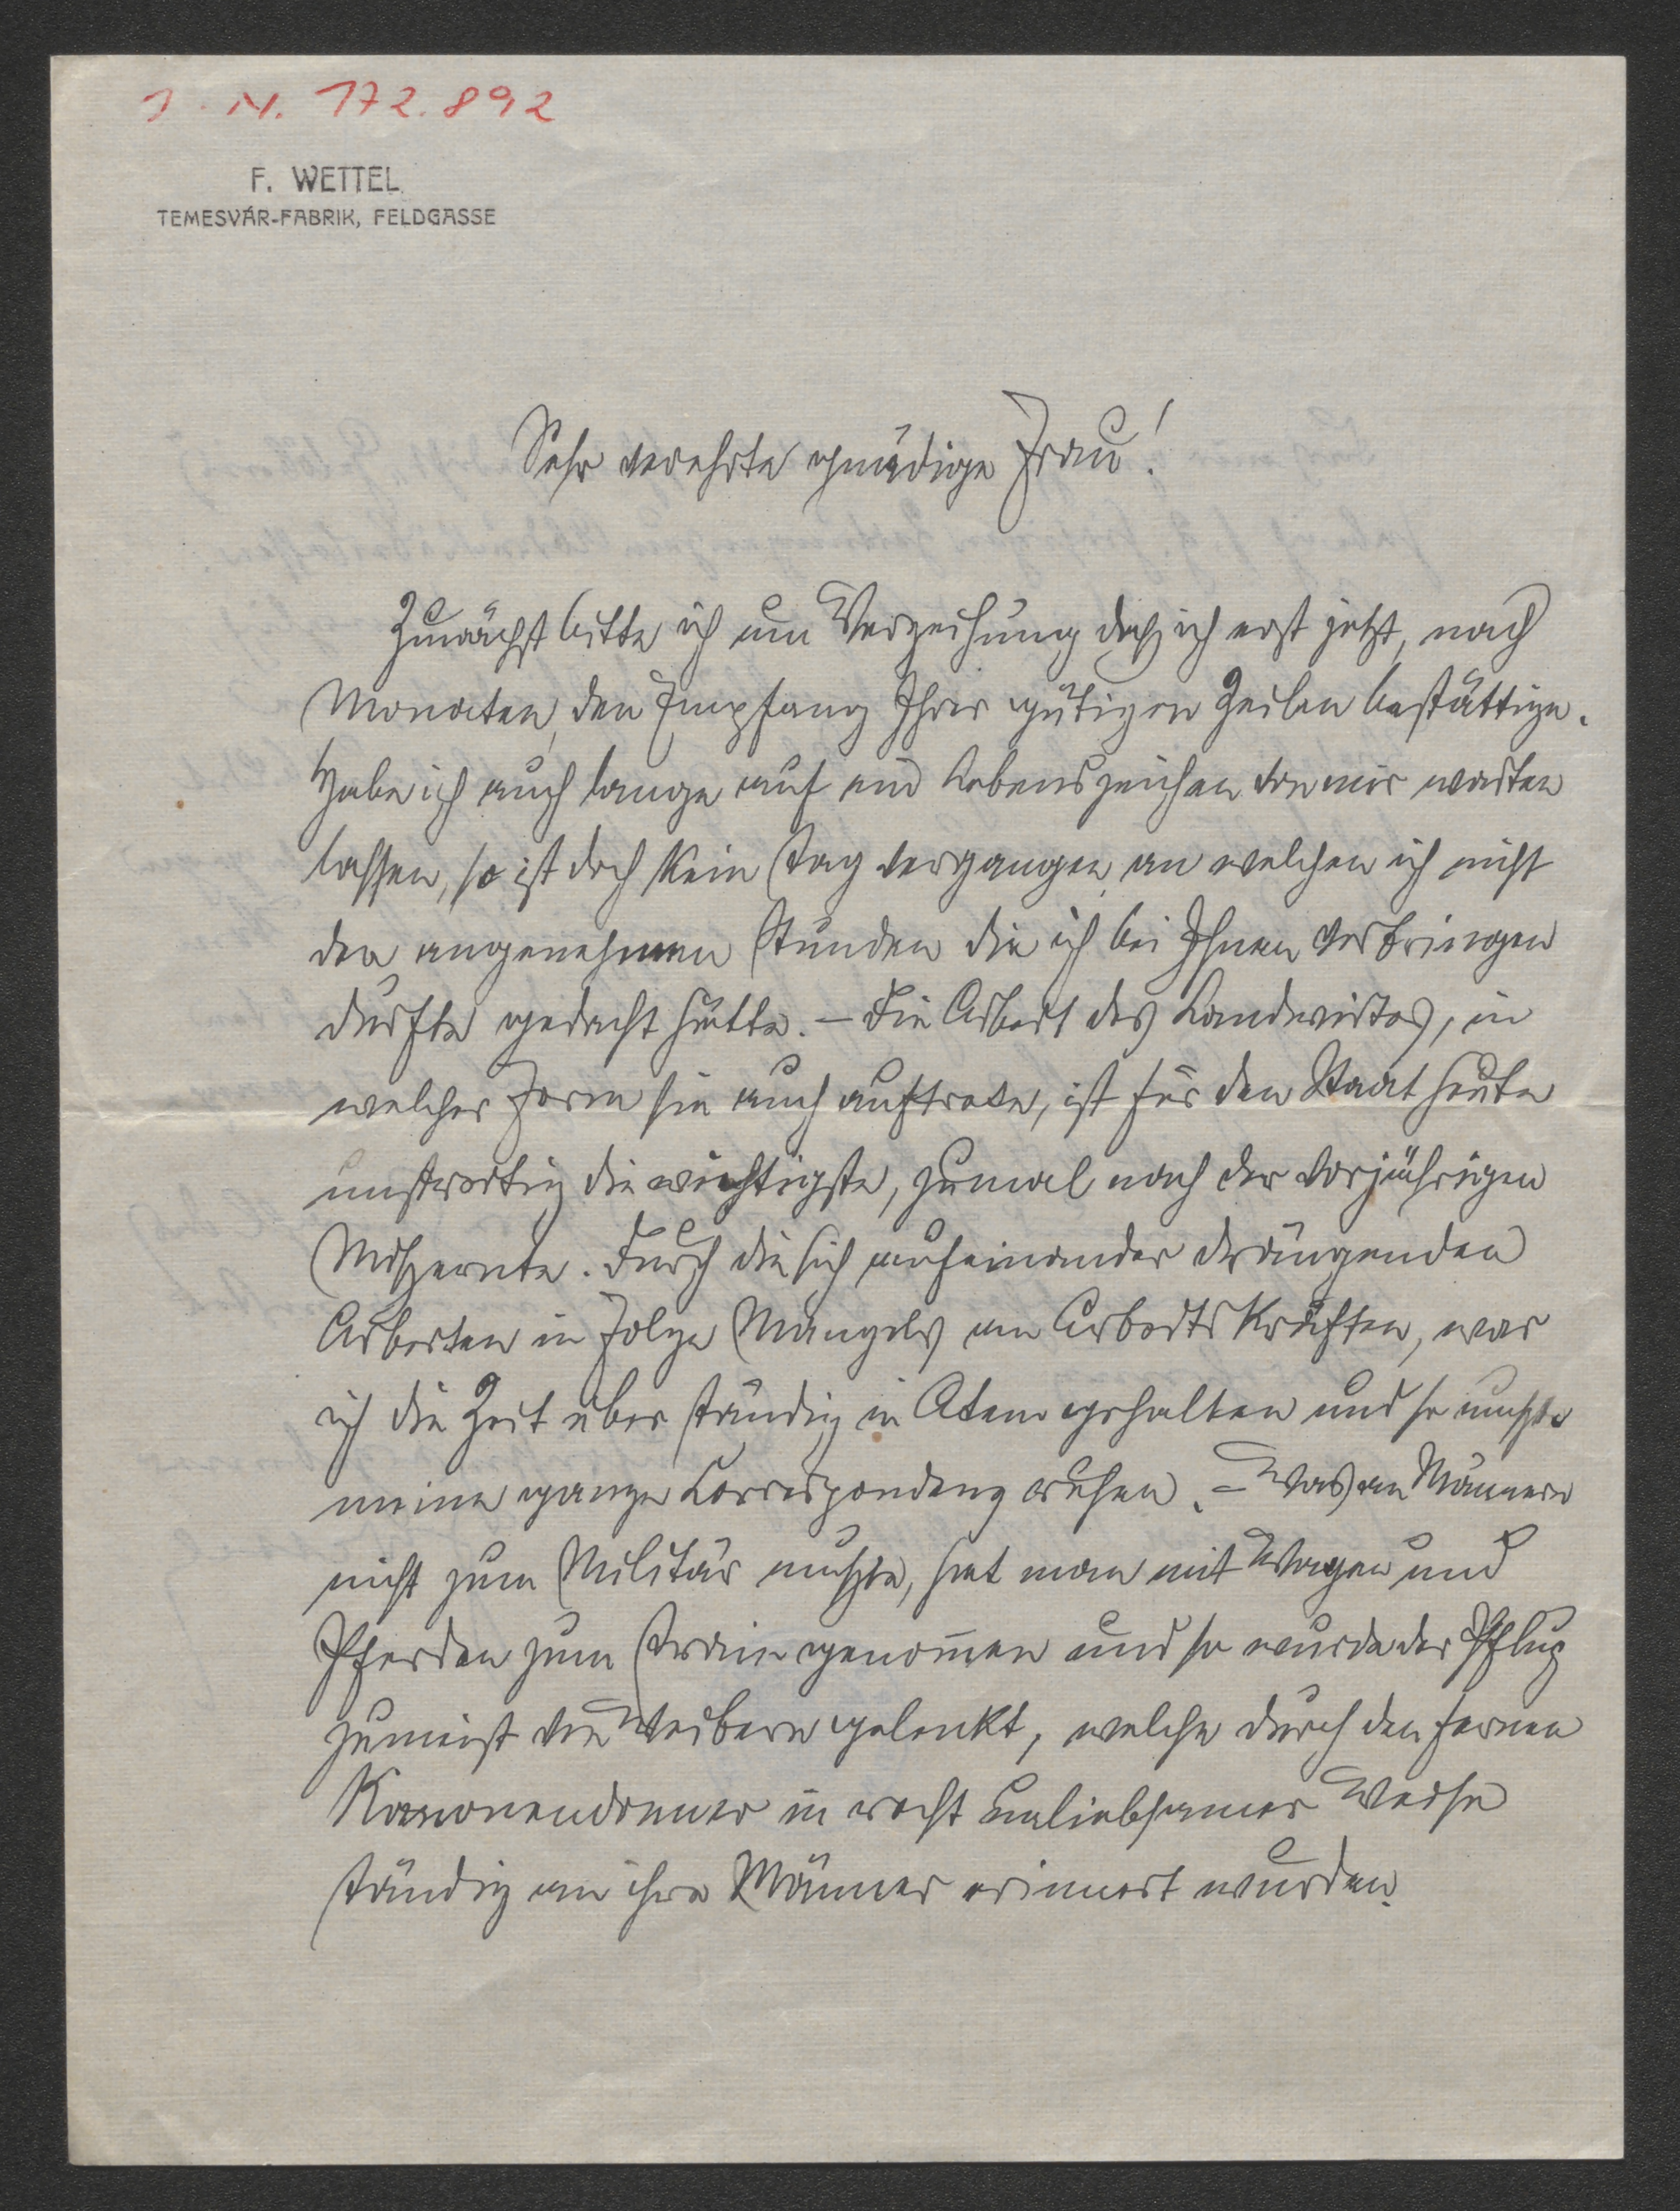 I. N. 172.892
F. WETTEL
TEMESVÁR-FABRIK, FELDGASSE
Sehr verehrte gnädige Frau!
Zunächst bitte ich um Verzeihung daß ich erst jetzt, nach
Monaten, den Empfang Ihrer gütigen Zeilen bestättige.
Habe ich auch lange auf ein Lebenszeichen von mir warten
lassen, so ist doch kein Tag vergangen, an welchen ich nicht
der angenehmen Stunden die ich bei Ihnen verbringen
durfte gedacht hätte. – Die Arbeit des Landwirtes, in
welcher Form sie auch auftrete, ist für den Staat heute
die wichtigste, zumal nach der vorjährigen
Mißernte. Durch die sich aufeinander drängenden
Arbeiten in Folge Mangels an Arbeitskräften, war
ich die Zeit über ständig in Atem gehalten und so mußte
meine ganze Correspondenz ruhen. – Was an Männern
nicht zum Militär mußte, hat man mit Wagen und
Pferden zum Train genom̄en und so wurde der Pflug
zumeist von Weibern gelenkt, welche durch den fernen
Kanonendonner in recht unliebsamer Weise
ständig an ihre Männer erinnert wurden.